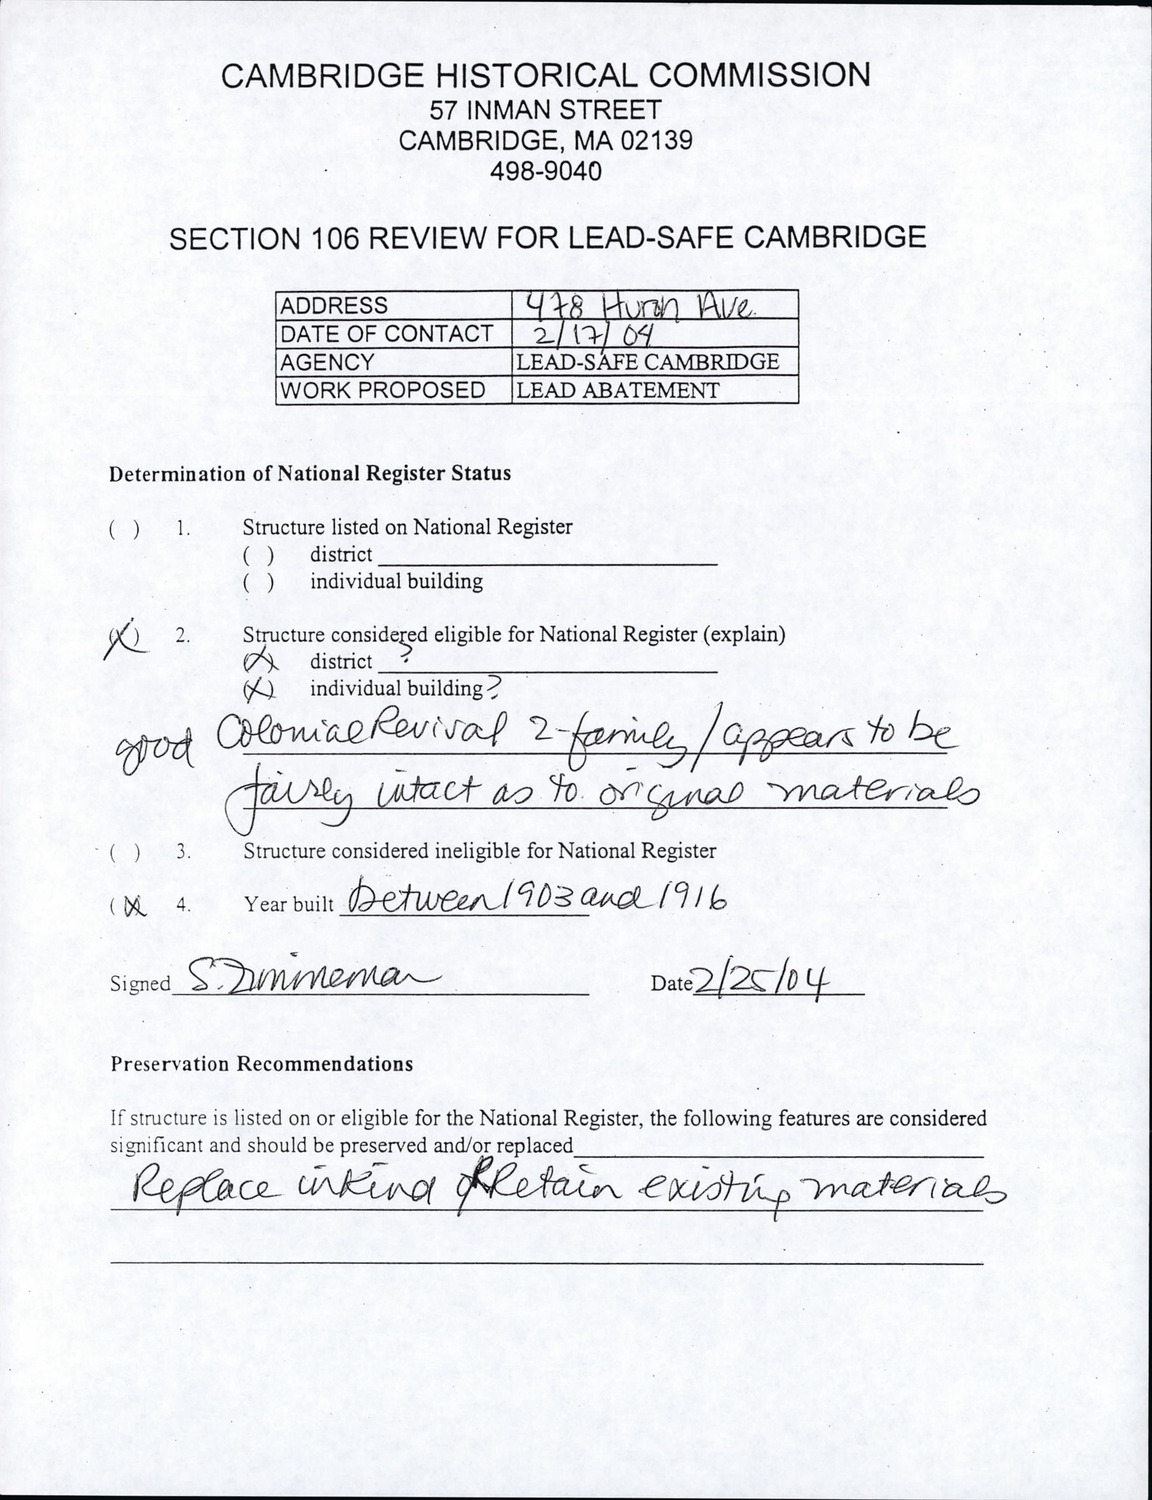 CAMBRIDGE HISTORICAL COMMISSION
57 INMAN STREET
CAMBRIDGE, MA 02139
498-9040
SECTION 106 REVIEW FOR LEAD-SAFE CAMBRIDGE
ADDRESS 478 Huron Ave.
DATE OF CONTACT 2/17/04
AGENCY LEAD-SAFE CAMBRIDGE
WORK PROPOSED LEAD ABATEMENT
Determination of National Register Status
( ) 1. Structure listed on National Register
( ) district
( ) individual building
(X) 2. Structure considered eligible for National Register (explain)
(X) district ?
(X) individual building?
good Colonial Revival 2-family / appears to be
fairly intact as to original materials
( ) 3. Structure considered ineligible for National Register
(X) 4. Year built between 1903 and 1916
Signed S. Zimmerman Date 2/25/04
Preservation Recommendations
If structure is listed on or eligible for the National Register, the following features are considered
significant and should be preserved and/or replaced
Replace inkind or Retain existing materials